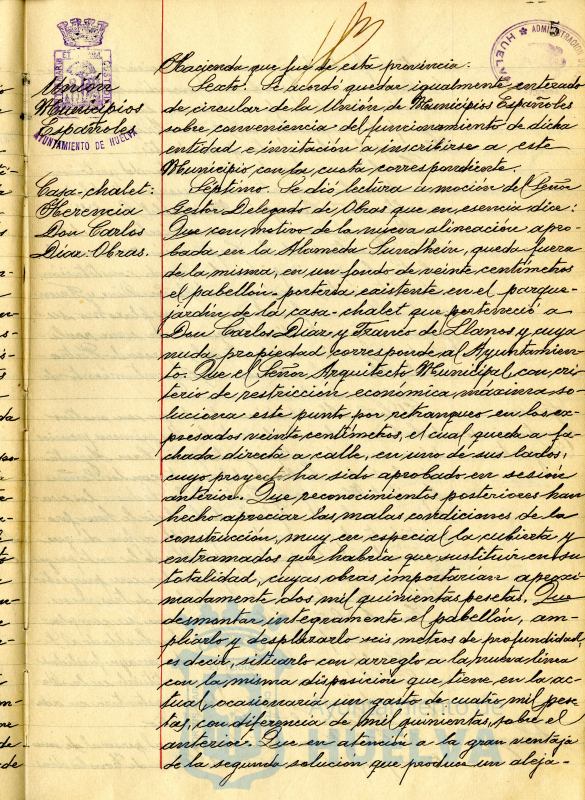 5
ADMINISTRACION
HUELVA
AYUNTAMIENTO DE HUELVA
Unión
Municipios
Españoles
Casa-chalet:
Herencia
Don Carlos
Díaz: Obras.
Hacienda que fue de esta provincia.
Sexto. Se acordó quedar igualmente enterado
de circular de la Unión de Municipios Españoles
sobre conveniencia del funcionamiento de dicha
entidad e invitación a inscribirse a este
Municipio con la cuota correspondiente.
Séptimo. Se dio lectura a moción del Señor
Gestor Delegado de Obras que en esencia dice:
Que con motivo de la nueva alineación apro-
bada en la Alameda Sundhein, queda fuera
de la misma, en un fondo de veinte centímetros
el pabellón-portería existente en el parque-
jardín de la casa-chalet que perteneció a
Don Carlos Díaz y Franco de Llanos y cuya
nuda propiedad corresponde al Ayuntamien-
to. Que el Señor Arquitecto Municipal, con cri-
terio de restricción económica máxima so-
luciona este punto por retranqueo en los ex-
presados veinte centímetros, el cual queda a fa-
chada directa a calle, en uno de sus lados,
cuyo proyecto ha sido aprobado en sesión
anterior. Que reconocimientos posteriores han
hecho apreciar las malas condiciones de la
construcción, muy en especial la cubierta y
entramados que habría que sustituir en su
totalidad, cuyas obras importarían aproxi-
madamente dos mil quinientas pesetas. Que
desmontar íntegramente el pabellón, am-
pliarlo y desplazarlo seis metros de profundidad,
es decir, situarlo con arreglo a la nueva línea
con la misma disposición que tiene en la ac-
tual, ocasionaría un gasto de cuatro mil pese-
tas, con diferencia de mil quinientas, sobre el
anterior. Que en atención a la gran ventaja
de la segunda solución que produce un aleja-
Ayuntamiento de
HUELVA